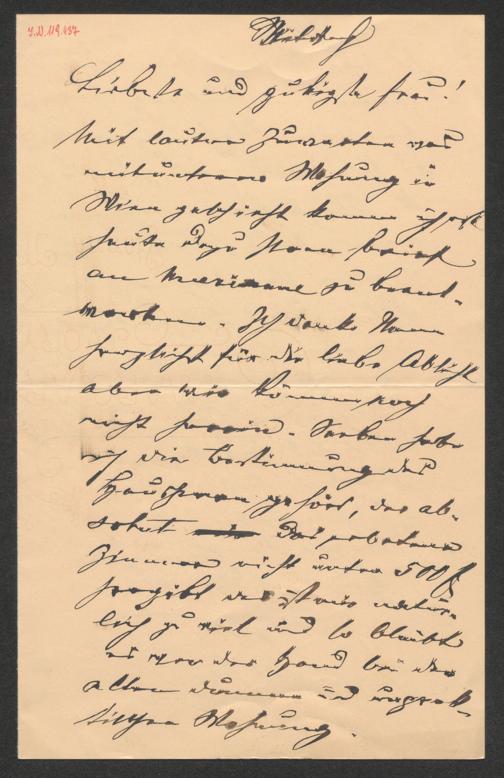 I.N. 119.437
Mittwoch
Liebste und gütigste Frau!
Mit lauter Zuwarten was
Wohnung in
Wien geschieht komme ich erst
heute dazu Ihren Brief
an Marianne zu beant-
worten. Ich danke Ihnen
herzlichst für die liebe Absicht
aber wir können noch
nicht herein. Soeben habe
ich die Bestimmung des
Hausherrn gehört, der ab-
solut das erbetene
Zimmer nicht unter 500 f
hergibt das ist mir natür-
lich zu viel und so bleibt
es vor der Hand bei der
alten dummen und unprak-
tischen Wohnung.